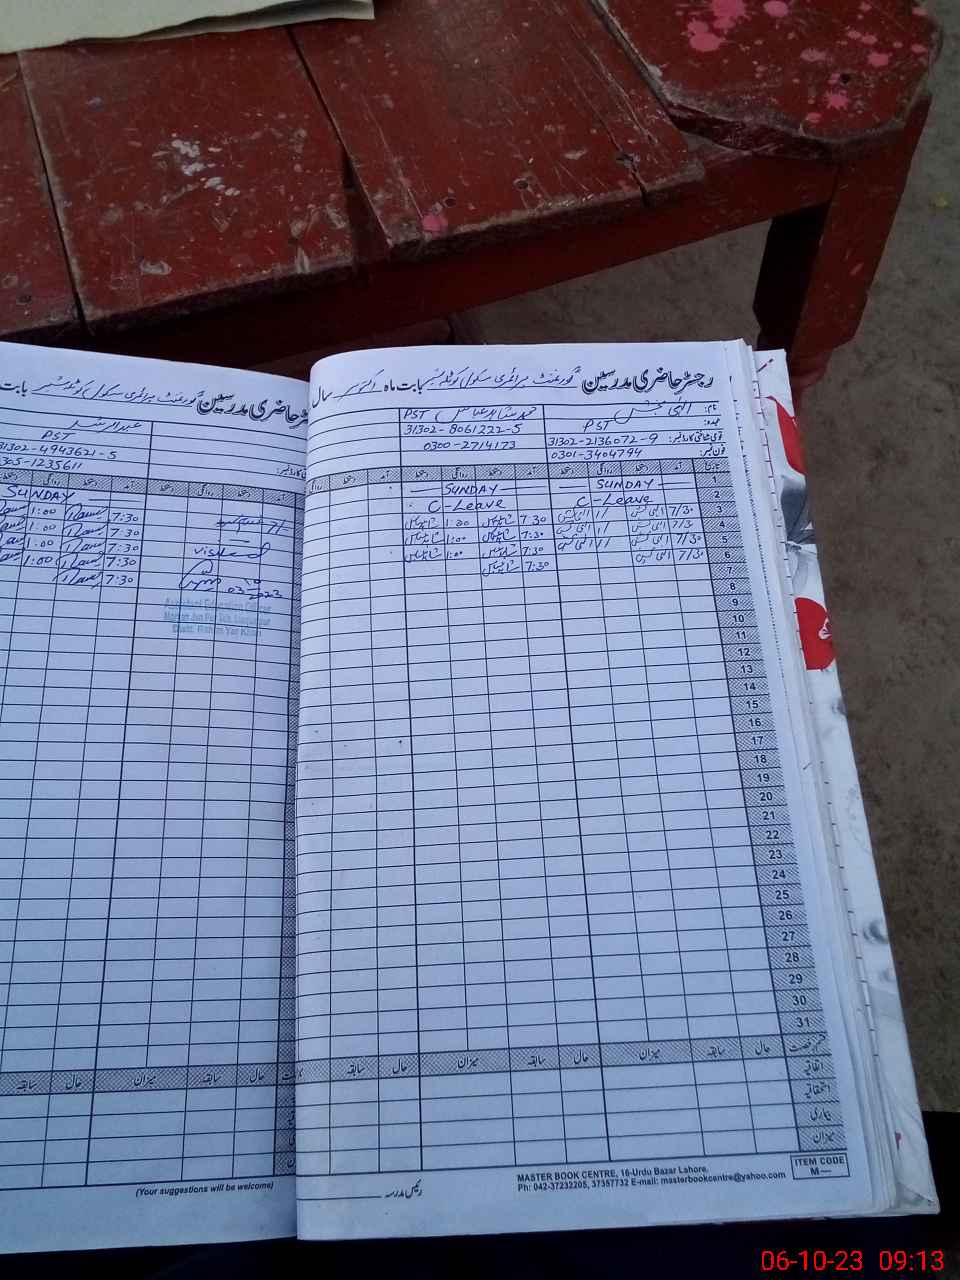 رجسٹر حاضری مدرسین گورنمنٹ پرائمری سکول بابت ماہ اکتوبر سال
نام: الٰہی بخش
عہدہ: PST
قومی شناختی کارڈ نمبر: 31302-2136072-9
فون نمبر: 0301-3404794
محمد شاہد عباس PST
31302-8061222-5
0300-2714173
تاریخ آمد دستخط روانگی دستخط آمد دستخط روانگی دستخط آمد دستخط روانگی
1 SUNDAY SUNDAY
2 C-Leave C-Leave
3 7/30 الٰہی بخش 1/ الٰہی بخش 7:30 1:00
4 7/30 الٰہی بخش 1/ الٰہی بخش 7:30 1:00
5 7/30 الٰہی بخش 1/ الٰہی بخش 7:30 1:00
6 7/30 الٰہی بخش 7:30
7
8
9
10
11
12
13
14
15
16
17
18
19
20
21
22
23
24
25
26
27
28
29
30
31
قسم رخصت حال سابقہ میزان حال سابقہ میزان حال سابقہ
اتفاقیہ
استحقاقیہ
بیماری
میزان
رئیس مدرسہ
MASTER BOOK CENTRE, 16-Urdu Bazar Lahore.
Ph: 042-37232205, 37357732 E-mail: masterbookcentre@yahoo.com
ITEM CODE
M—
رجسٹر حاضری مدرسین گورنمنٹ پرائمری سکول بابت
PST
31302-4943621-5
0305-1235611
SUNDAY
7:30 1:00
7:30 1:00
7:30 1:00
7:30
Visited
03-10-2023
Assistant Education Officer
Distt. Rahim Yar Khan
حال سابقہ میزان حال سابقہ
(Your suggestions will be welcome)
06-10-23 09:13